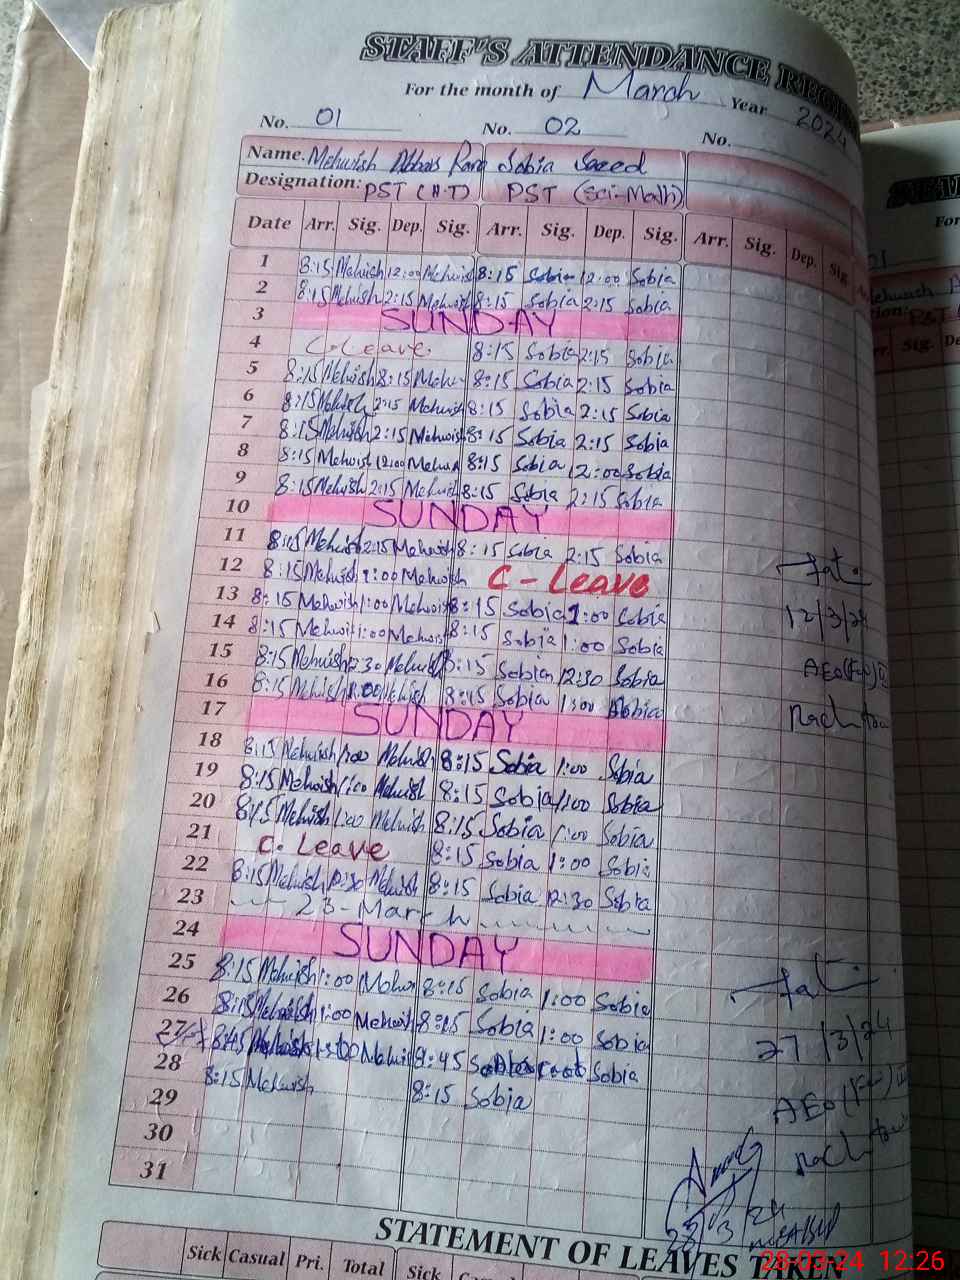 STAFF'S ATTENDANCE REGI
For the month of March Year 2024
No. 01 No. 02 No.
Name. Mehwish Abbas Rana Sobia Saeed
Designation: PST (H-T) PST (Sci-Math)
Date Arr. Sig. Dep. Sig. Arr. Sig. Dep. Sig. Arr. Sig. Dep. Sig.
1 8:15 Mehwish 12:00 Mehwish 8:15 Sobia 12:00 Sobia
2 8:15 Mehwish 2:15 Mehwish 8:15 Sobia 2:15 Sobia
3 SUNDAY
4 C-Leave 8:15 Sobia 2:15 Sobia
5 8:15 Mehwish 8:15 Mehw 8:15 Sobia 2:15 Sobia
6 8:15 Mehwish 2:15 Mehwish 8:15 Sobia 2:15 Sobia
7 8:15 Mehwish 2:15 Mehwish 8:15 Sobia 2:15 Sobia
8 8:15 Mehwish 12:00 Mehwish 8:15 Sobia 12:00 Sobia
9 8:15 Mehwish 2:15 Mehwish 8:15 Sobia 2:15 Sobia
10 SUNDAY
11 8:15 Mehwish 2:15 Mehwish 8:15 Sobia 2:15 Sobia
12 8:15 Mehwish 1:00 Mehwish C-Leave
13 8:15 Mehwish 1:00 Mehwish 8:15 Sobia 1:00 Sobia
12/3/24
14 8:15 Mehwish 1:00 Mehwish 8:15 Sobia 1:00 Sobia
15 8:15 Mehwish 12:30 Mehwish 8:15 Sobia 12:30 Sobia
16 8:15 Mehwish 1:00 Mehwish 8:15 Sobia 1:00 Sobia
17 SUNDAY
18 8:15 Mehwish 1:00 Mehwish 8:15 Sobia 1:00 Sobia
19 8:15 Mehwish 1:00 Mehwish 8:15 Sobia 1:00 Sobia
20 8:15 Mehwish 1:00 Mehwish 8:15 Sobia 1:00 Sobia
21 C-Leave 8:15 Sobia 1:00 Sobia
22 8:15 Mehwish 12:30 Mehwish 8:15 Sobia 12:30 Sobia
23 23-March
24 SUNDAY
25 8:15 Mehwish 1:00 Mehwish 8:15 Sobia 1:00 Sobia
26 8:15 Mehwish 1:00 Mehwish 8:15 Sobia 1:00 Sobia
27 8:45 Mehwish 1:00 Mehwish 8:45 Sobia 1:00 Sobia
27/3/24
28 8:15 Mehwish 8:15 Sobia
29
30
31
STATEMENT OF LEAVES TAKE
Sick Casual Pri. Total Sick
28-03-24 12:26